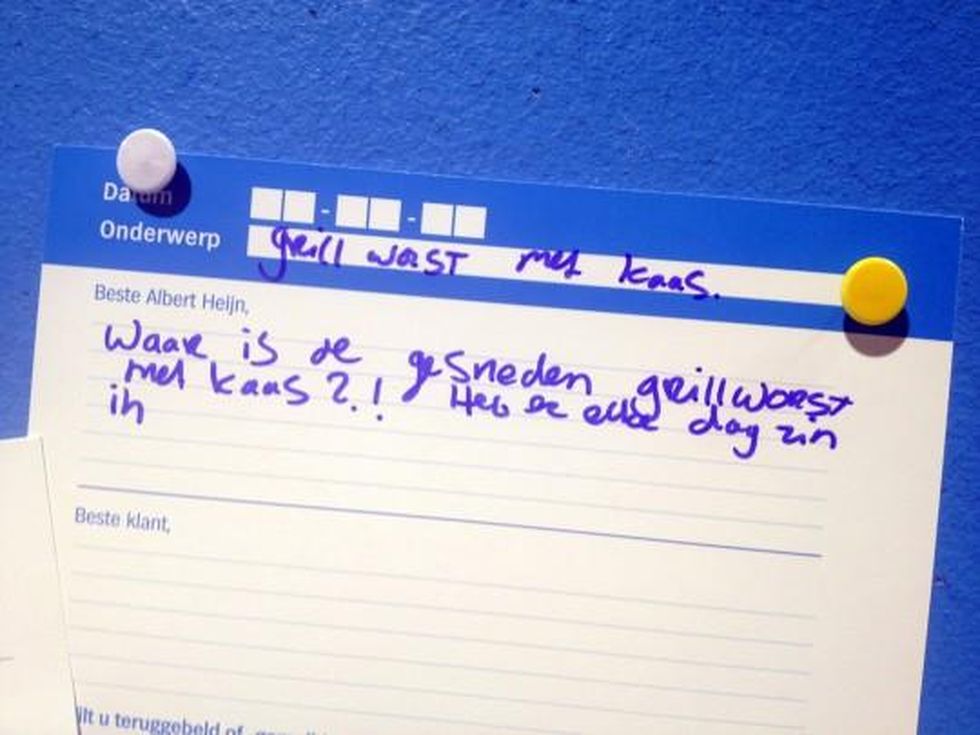 Datum
Onderwerp grill worst met kaas.
Beste Albert Heijn,
Waar is de gesneden grillworst
met kaas ?.! Heb er elke dag zin
in
Beste klant,
ilt u teruggebeld of